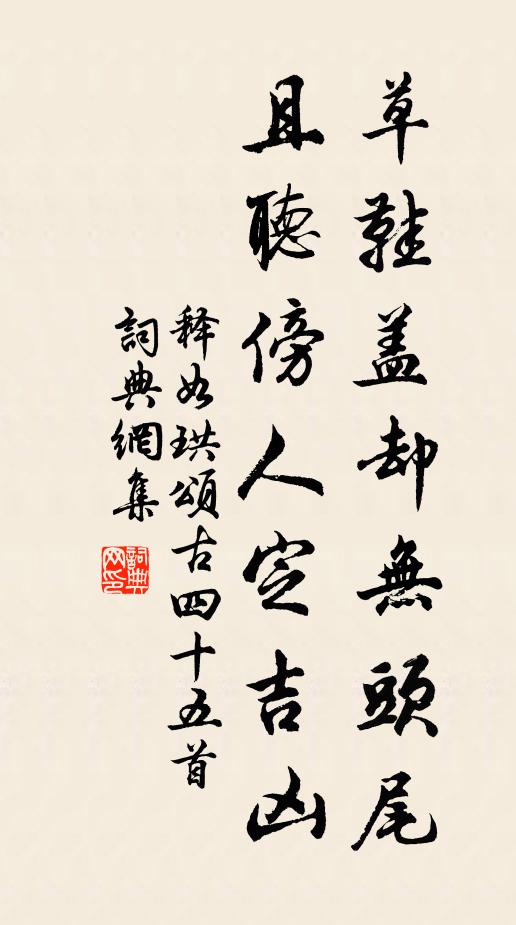 草鞋盖却無頭尾
且聽傍人定吉凶
释如珙頌古四十五首
詞典網集
詞典网印